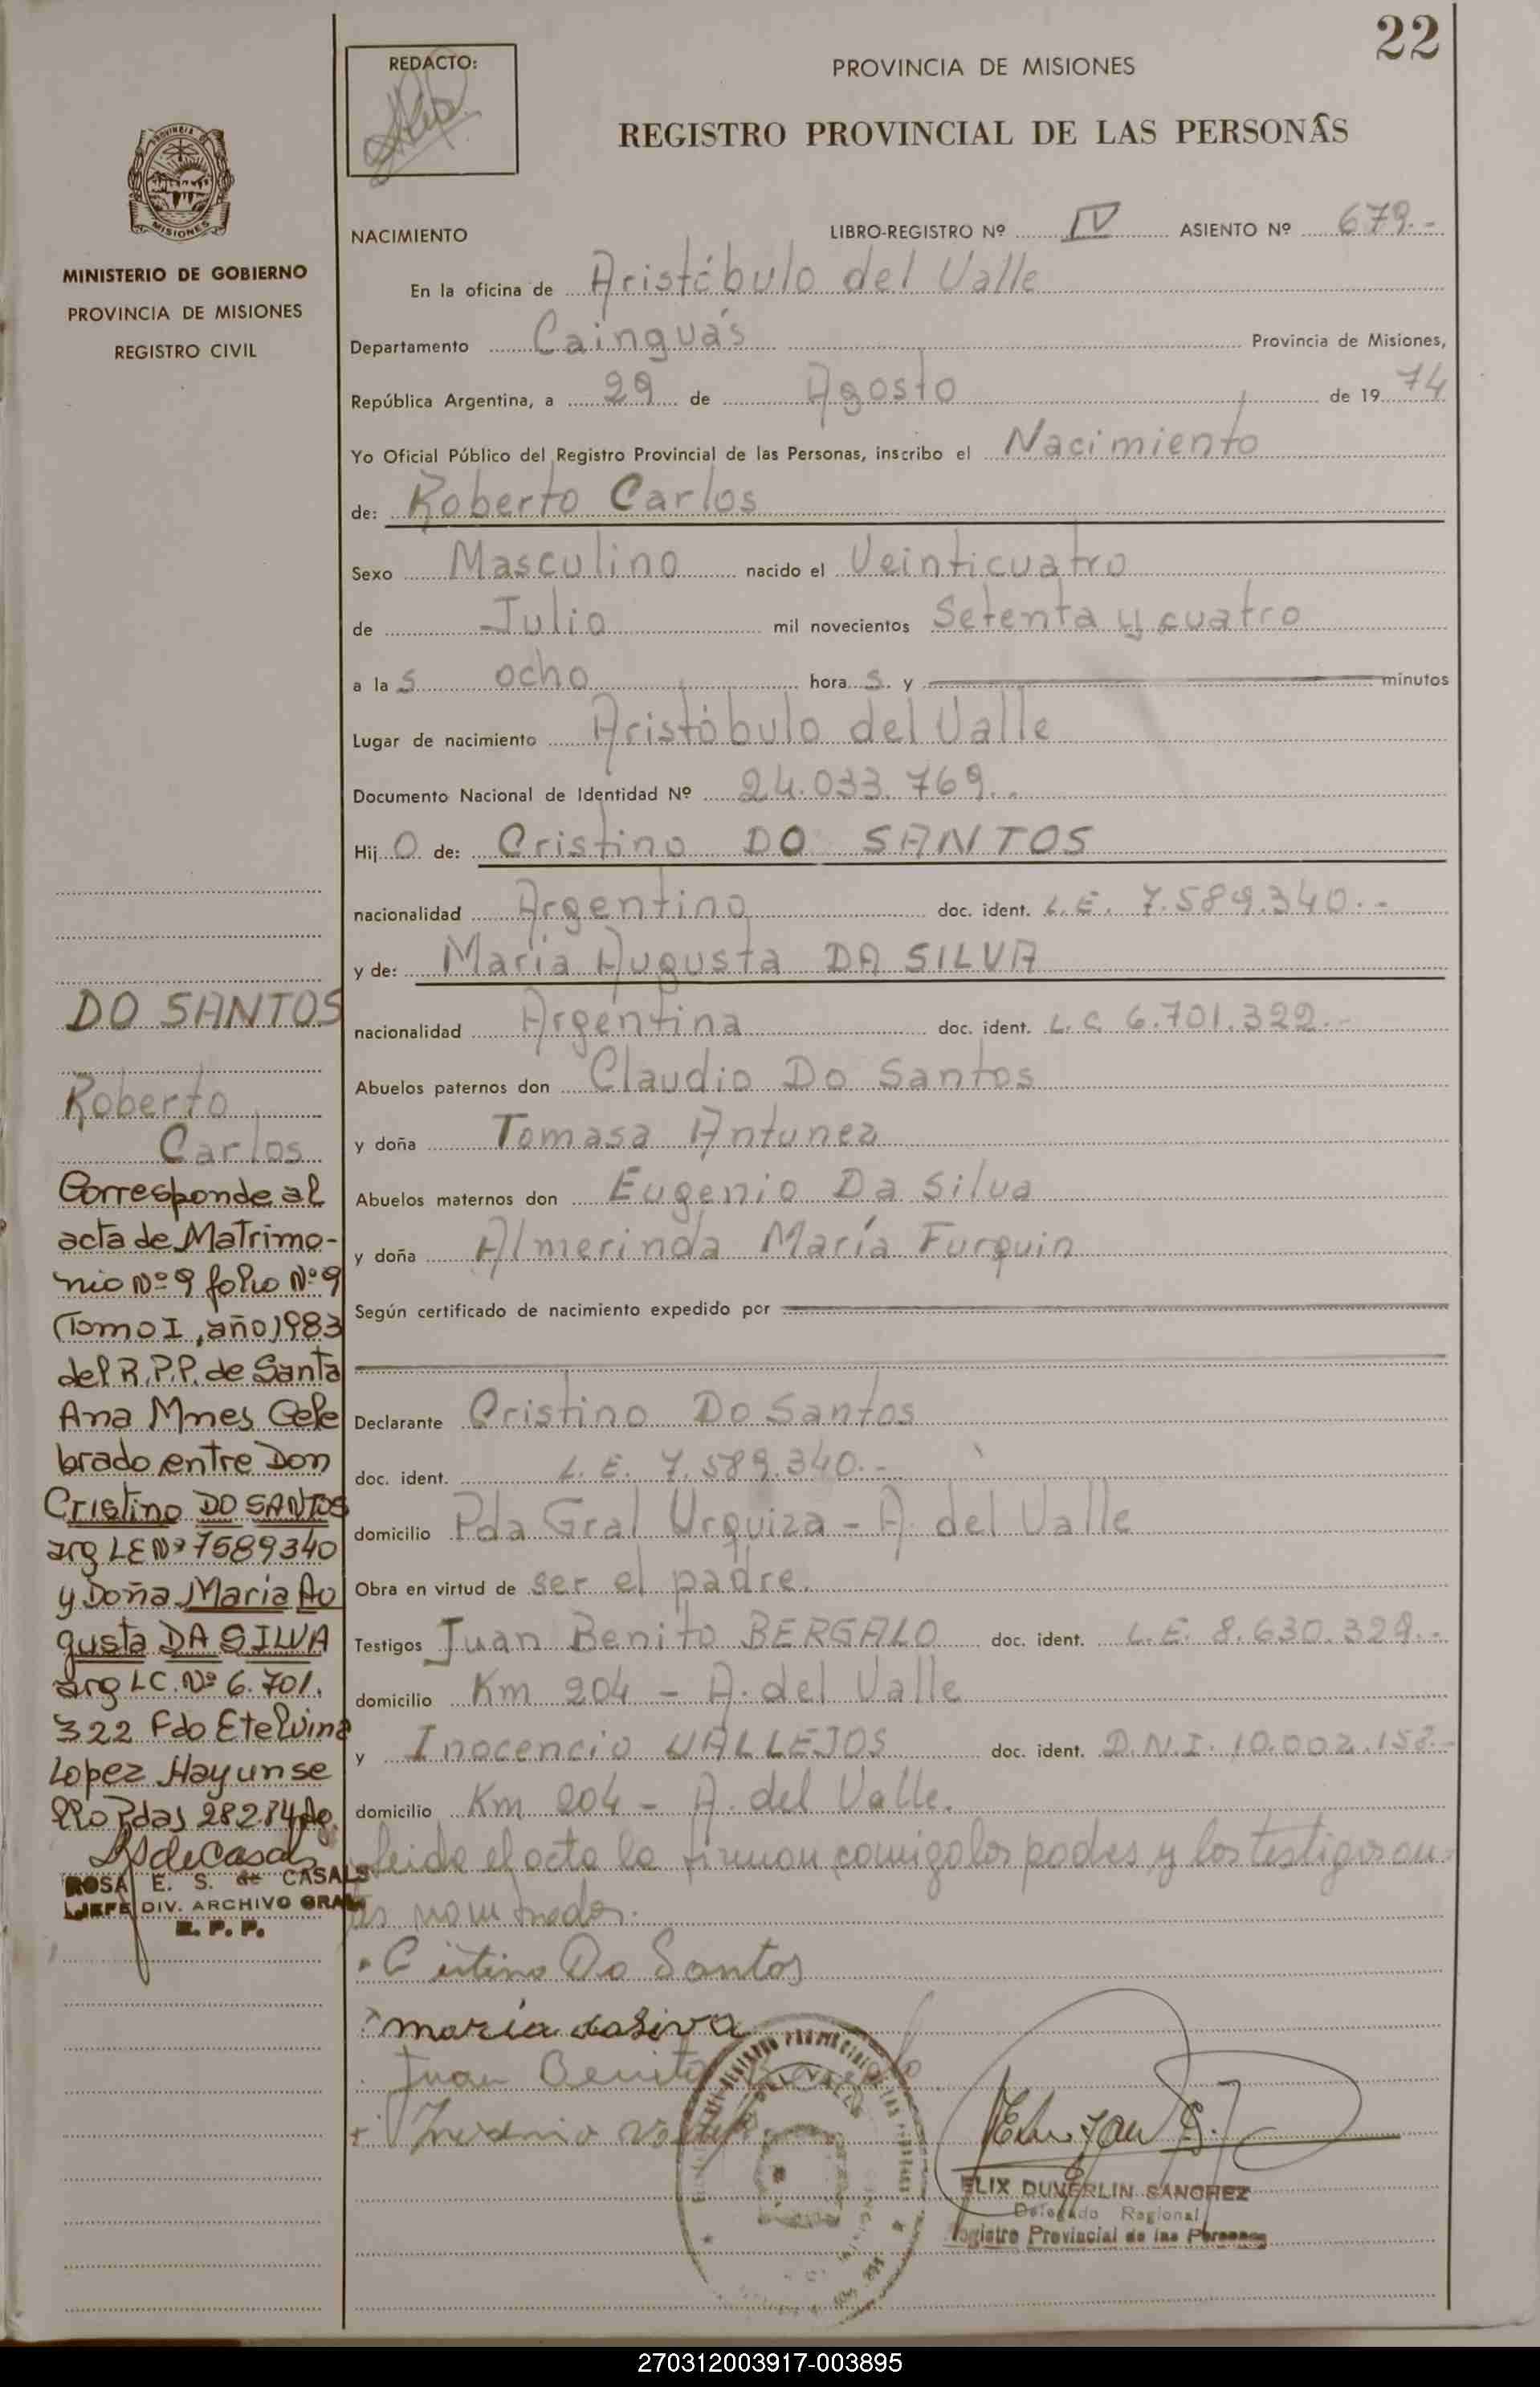 22
REDACTO:
PROVINCIA DE MISIONES
REGISTRO PROVINCIAL DE LAS PERSONAS
MISIONES
MINISTERIO DE GOBIERNO
PROVINCIA DE MISIONES
REGISTRO CIVIL
NACIMIENTO LIBRO-REGISTRO Nº IV ASIENTO Nº 679.-
En la oficina de Aristóbulo del Valle
Departamento Cainguás Provincia de Misiones,
República Argentina, a 29 de Agosto de 1974
Yo Oficial Público del Registro Provincial de las Personas, inscribo el Nacimiento
de: Roberto Carlos
Sexo Masculino nacido el Veinticuatro
de Julio mil novecientos Setenta y cuatro
a las ocho horas. y minutos
Lugar de nacimiento Aristóbulo del Valle
Documento Nacional de Identidad Nº 24.033.769.-
Hijo de: Cristino DO SANTOS
nacionalidad Argentino doc. ident. L.E. 7.589.340.-
y de: Maria Augusta DA SILVA
nacionalidad Argentina doc. ident. L.C 6.701.322.-
Abuelos paternos don Claudio Do Santos
y doña Tomasa Antunez
Abuelos maternos don Eugenio Da Silva
y doña Almerinda María Furquin
Según certificado de nacimiento expedido por
Declarante Cristino Do Santos
doc. ident. L.E. 7.589.340.-
domicilio Pda Gral Urquiza - A. del Valle
Obra en virtud de ser el padre.
Testigos Juan Benito BERGALO doc. ident. L.E. 8.630.329.-
domicilio Km 204 - A. del Valle
y Inocencio VALLEJOS doc. ident. D.N.I. 10.002.152.-
domicilio Km 204 - A. del Valle.
leida el acta la firman comigo los padres y los testigos an-
tes nombrados.
Cristino Do Santos
maria dasirva
Juan Benito
ELIX DUVERLIN SANCHEZ
Delegado Regional
Registro Provincial de las Personas
DO SANTOS
Roberto
Carlos
Corresponde al
acta de Matrimo-
nio Nº 9 folio Nº 9
Tomo I, año 1983
del R.P.P. de Santa
Ana Mnes Cele
brado entre Don
Cristino DO SANTOS
arg LE Nº 7589340
y Doña Maria Au
gusta DA SILVA
arg LC. Nº 6.701.
322 Fdo Etelvina
Lopez Hay un se
llo Pdas 28284
ROSA E. S. de CASALS
JEFE DIV. ARCHIVO GRAL
R. P. P.
270312003917-003895